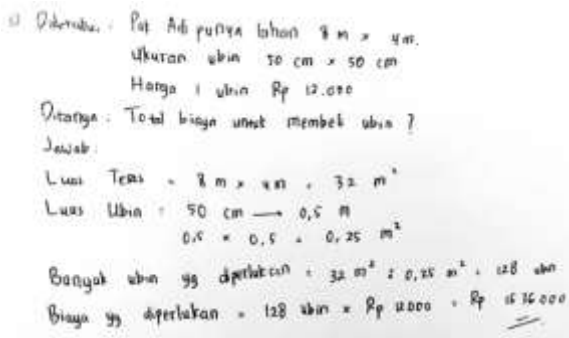 Diketahui : Pak Adi punya lahan 8 m x 4 m.
Ukuran ubin 50 cm x 50 cm
Harga 1 ubin Rp 12.000
Ditanya : Total biaya untuk membeli ubin ?
Jawab :
Luas Teras = 8 m x 4 m = 32 m²
Luas Ubin = 50 cm → 0,5 m
0,5 x 0,5 = 0,25 m²
Banyak ubin yg diperlukan = 32 m² : 0,25 m² = 128 ubin
Biaya yg diperlukan = 128 ubin x Rp 12000 = Rp 1536000